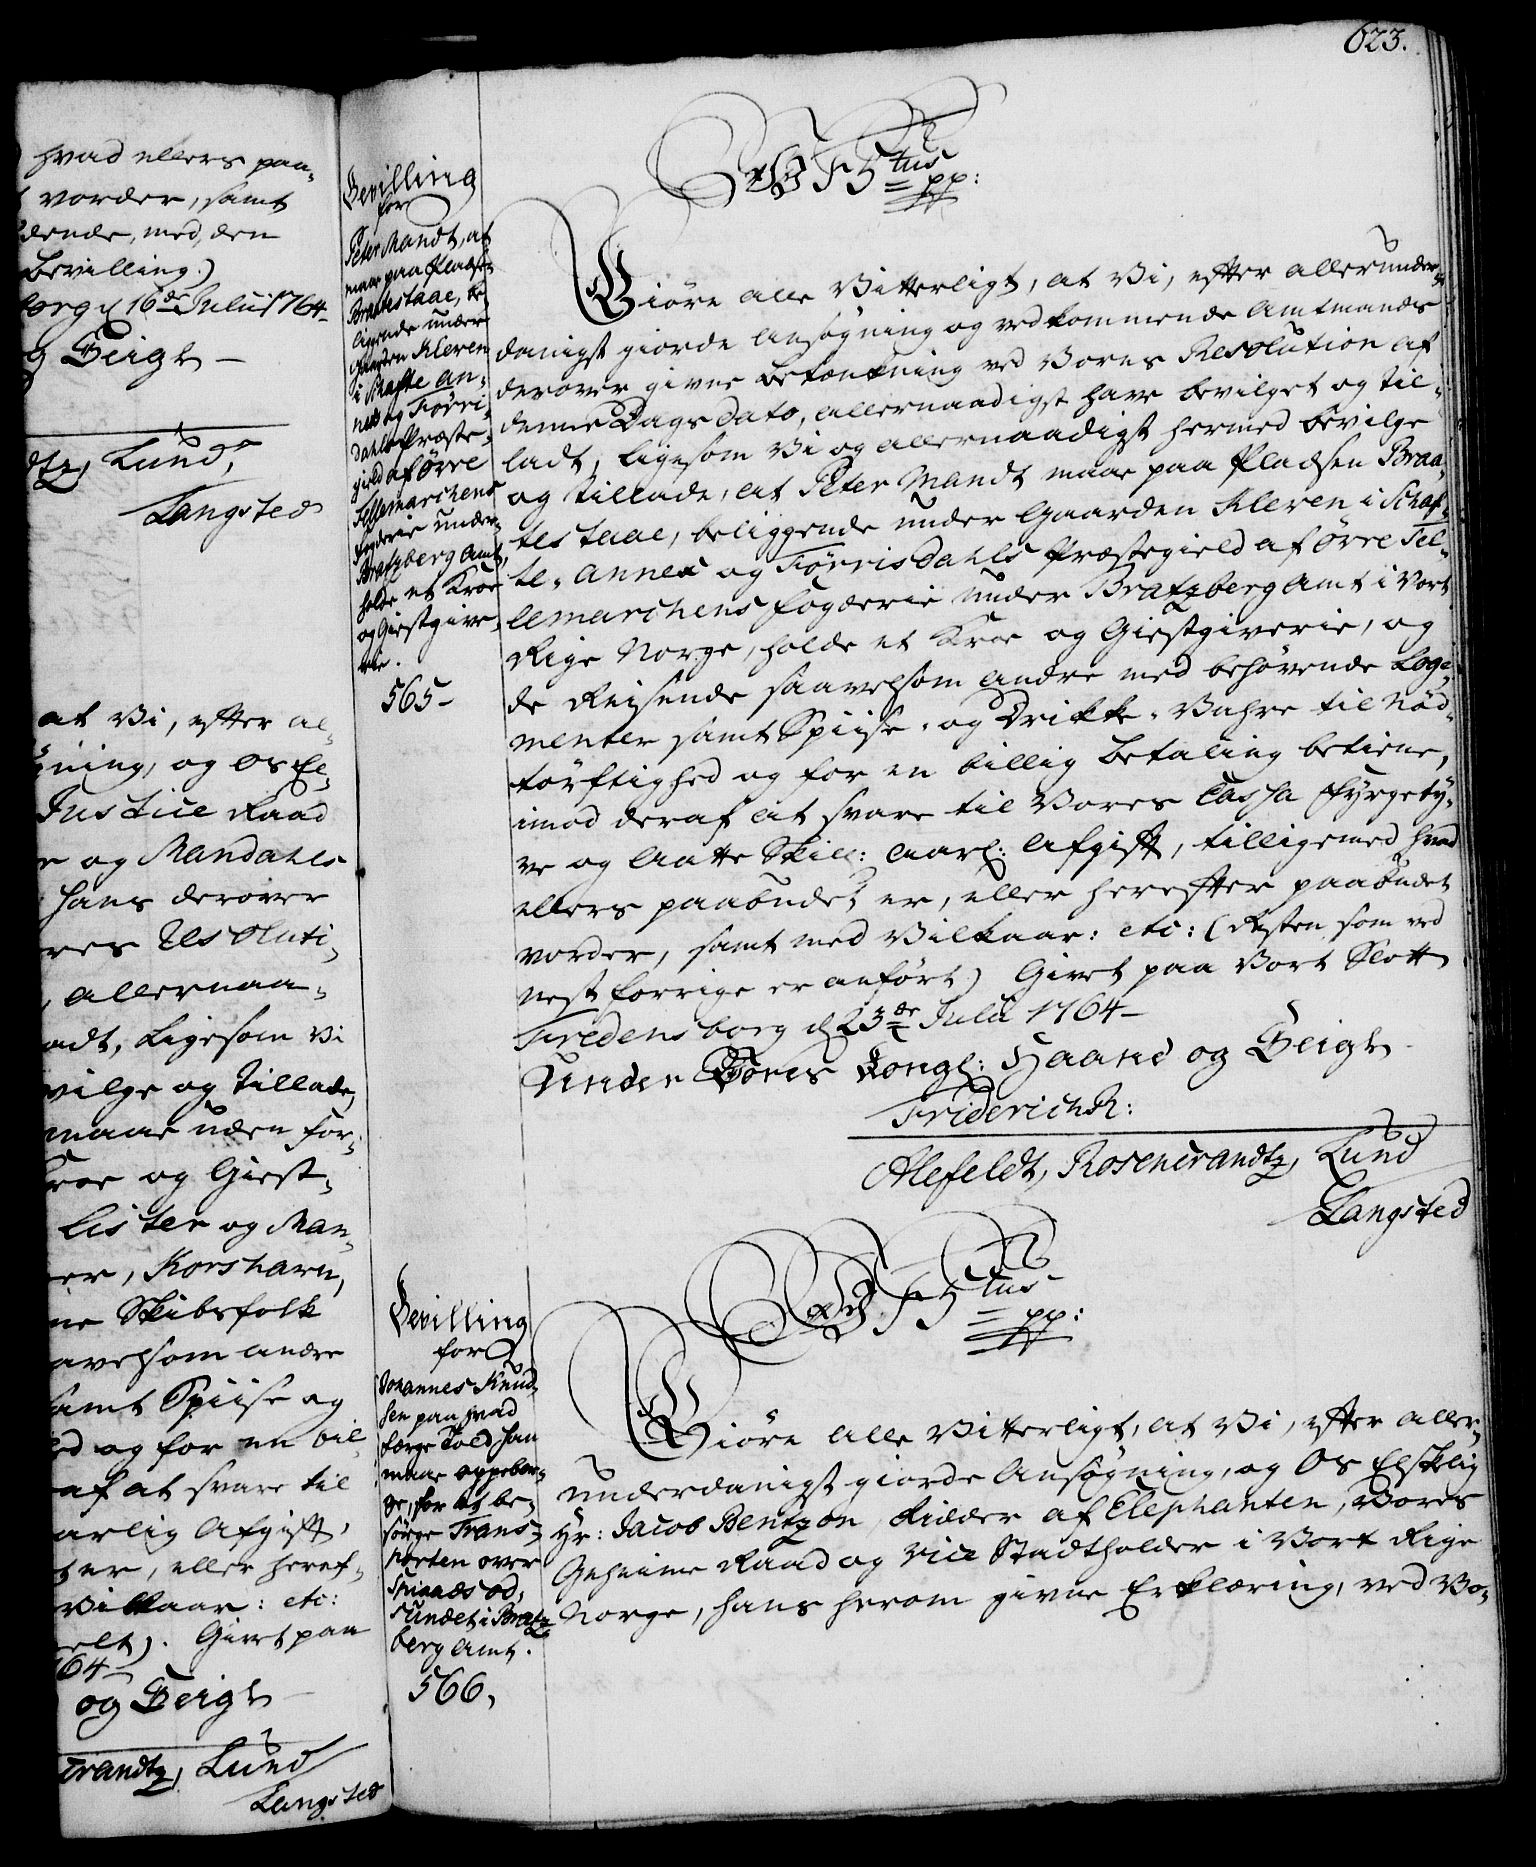 hvad ellers paa-
vorder, samt
dende, med, den
Bevilling.)
borg d 16de Julii 1764
og Seigl
dtz, Lund,
Langsted
at Vi, efter al-
ning, og Os El-
Justice Raad
e og Mandahls
hans derover
res Resoluti-
, allernaa-
adt, ligesom Vi
vilge og tillade,
maae uden for-
Kroe og Giest-
Lister og Man-
er, Korshavn,
ne Skibsfolk
avelsom andre
samt Spiise og
ed og for en bil-
af at svare til
arlig Afgift,
er, eller heref-
Vilkaar: etc:
elt). Givet paa
64
og Seigl
crandtz, Lund
Langsted
623.
Bevilling
for
Peter Mandt, at
maae paa Pladsen
Braatestaae, be-
liggende under
Gaarden Kleven
i Skafte An-
nex og Tørris-
dahls Præste-
gield af Øvre
Tellemarchens
Fogderie under
Bratzberg Amt,
holde et Kroe
og Giestgive-
rie.
565-
C F 5 tus
pp:
Giøre alle Vitterligt, at Vi, efter allerunder-
danigst giorde Ansøgning og vedkommende Amtmands
derover givne Betænkning ved Vores Resolution af
denne Dags Dato, allernaadigst have bevilget og til-
ladt, ligesom Vi og allernaadigst hermed bevilge
og tillade, at Peter Mandt maae paa Pladsen Braa-
testaae, beliggende under Gaarden Kleven i Skaf-
te-Annex og Tørrisdahls Præstegield af Øvre Tel-
lemarchens Fogderie under Bratzberg Amt i Vort
Rige Norge, holde et Kroe og Giestgiverie, og
de Reisende saavelsom andre med behøvende Loge-
menter samt Spiise- og Drikke-Vahre til Nød-
törftighed og for en billig Betaling betiene,
imod deraf at svare til Vores Cassa Fyrgety-
ve og Aatte Skill: aarl: Afgift, tilligemed hvad
ellers paabudet er, eller herefter paabudet
vorder, samt med Vilkaar: etc: (Resten som ved
nest forrige er anført) Givet paa Vort Slott
Fredensborg d 23de Julii 1764-
Under Vores Kongl: Haand og Seigl
Friderich R:
Alefeldt, Rosencrandtz, Lund
Langsted
Bevilling
for
Johannes Knud-
sen paa hvad
færge Told han
maae oppebær-
ge, for at be-
sørge Trans-
porten over
Spiaads od,
Sundet i Bratz
berg Amt.
566,
C F 5 tus
pp:
Giøre alle Vitterligt, at Vi, efter aller-
underdanigst giorde Ansøgning, og Os Elskelig
Hr: Jacob Bentzon, Ridder af Elephanten, Vores
Geheime Raad og Vice Stadtholder i Vort Rige
Norge, hans herom givne Erklæring, ved Vo-